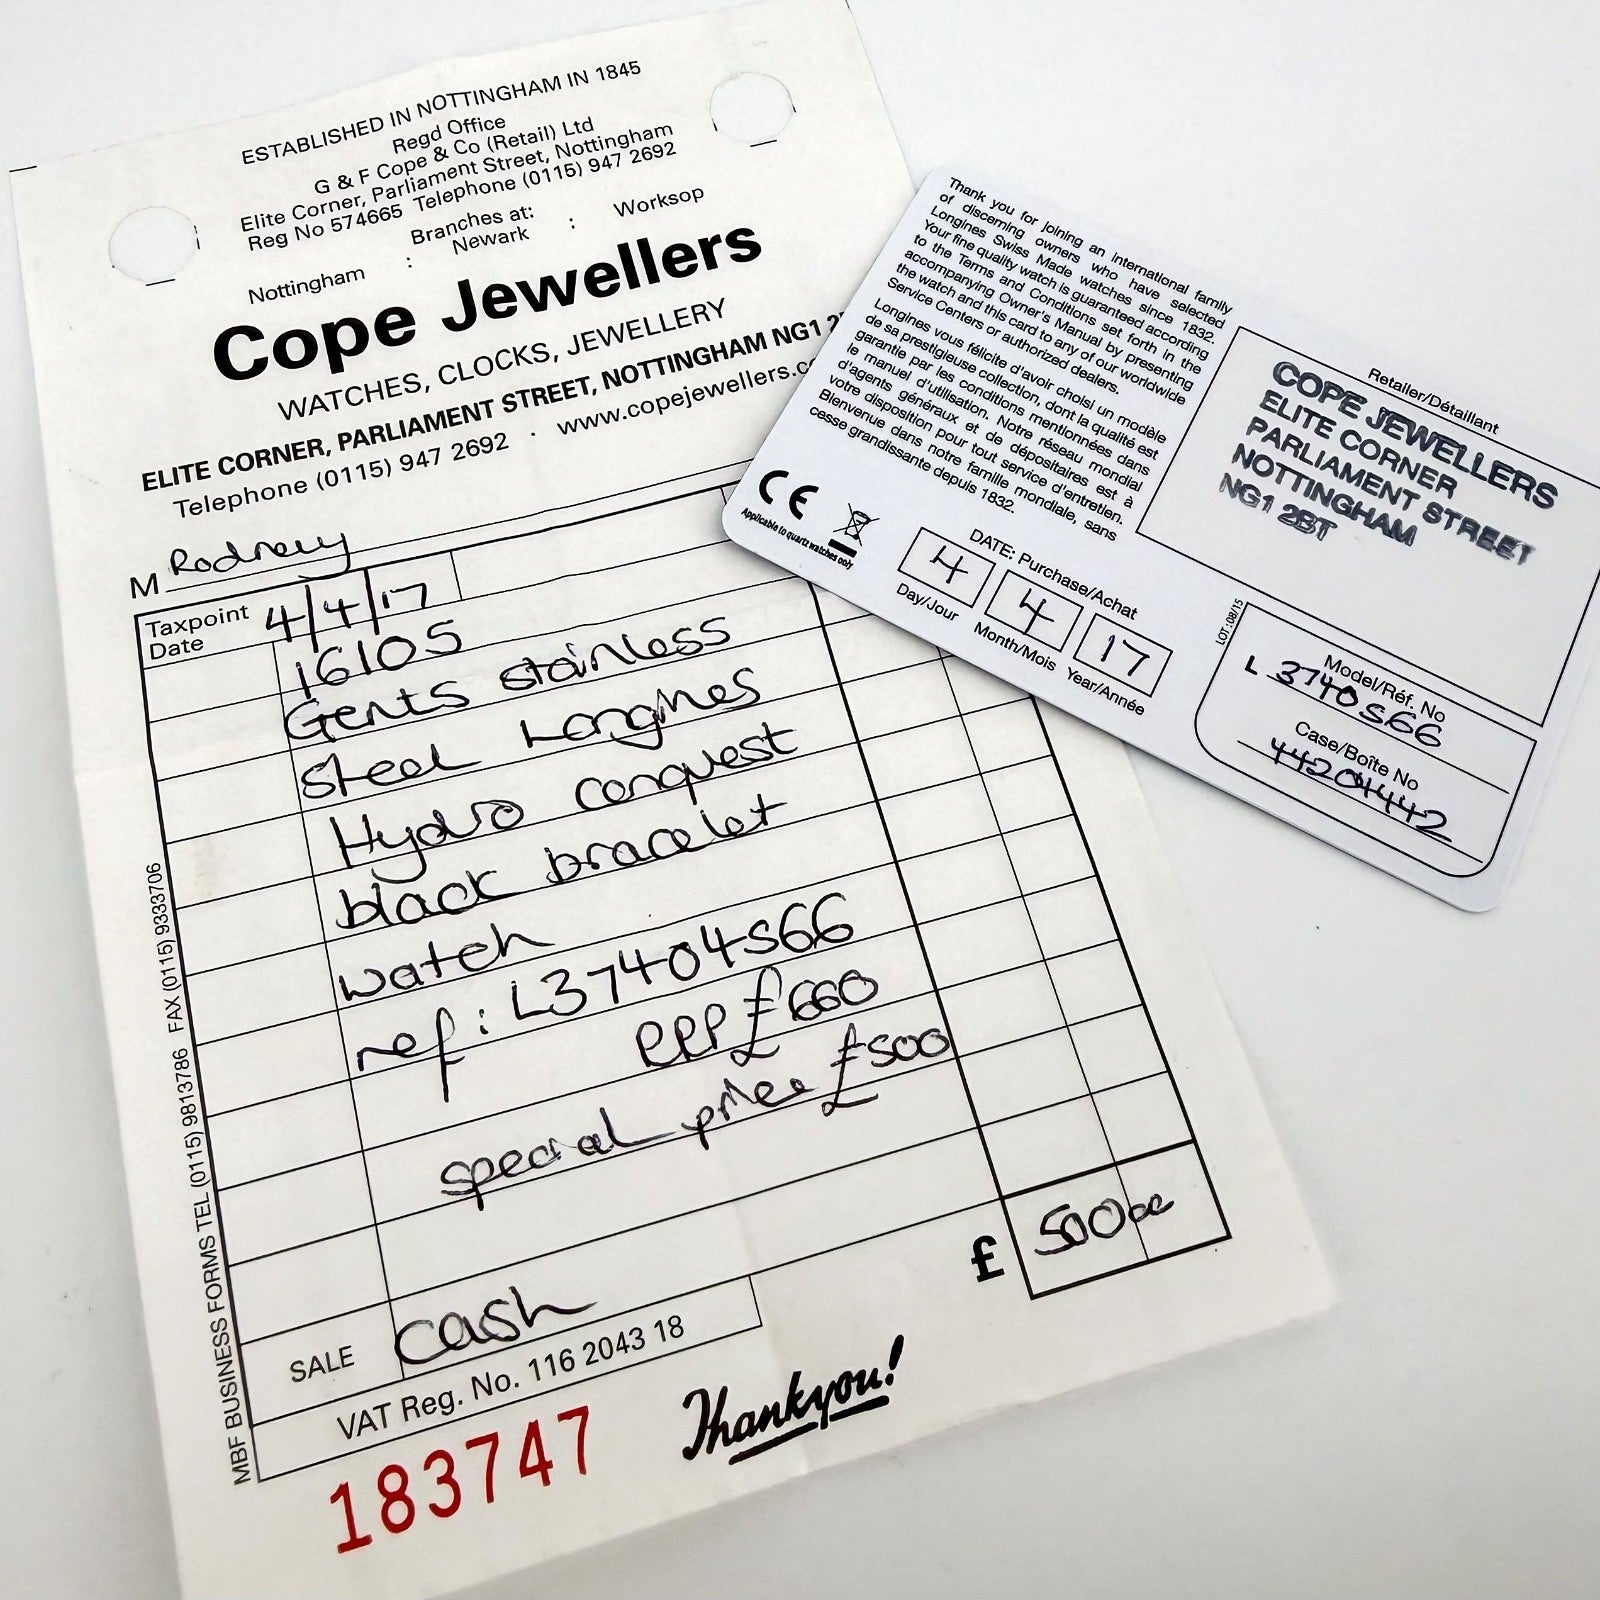 ESTABLISHED IN NOTTINGHAM IN 1845
Regd Office
G & F Cope & Co (Retail) Ltd
Elite Corner, Parliament Street, Nottingham
Reg No 574665 Telephone (0115) 947 2692
Branches at:
Nottingham : Newark : Worksop
Cope Jewellers
WATCHES, CLOCKS, JEWELLERY
ELITE CORNER, PARLIAMENT STREET, NOTTINGHAM NG1 2
Telephone (0115) 947 2692 · www.copejewellers.co
M Rodney
Taxpoint Date 4/4/17
16105
Gents stainless
steel Longines
Hydro conquest
black bracelet
watch
ref: L37404S66
RRP £660
special price £500
£ 500 00
SALE cash
VAT Reg. No. 116 2043 18
183747
Thankyou!
MBF BUSINESS FORMS TEL (0115) 9813786 FAX (0115) 9333706
Thank you for joining an international family
of discerning owners who have selected
Longines Swiss Made watches since 1832.
Your fine quality watch is guaranteed according
to the Terms and Conditions set forth in the
accompanying Owner's Manual by presenting
the watch and this card to any of our worldwide
Service Centers or authorized dealers.
Longines vous félicite d'avoir choisi un modèle
de sa prestigieuse collection, dont la qualité est
garantie par les conditions mentionnées dans
le manuel d'utilisation. Notre réseau mondial
d'agents généraux et de dépositaires est à
votre disposition pour tout service d'entretien.
Bienvenue dans notre famille mondiale, sans
cesse grandissante depuis 1832.
CE
Applicable to quartz watches only
DATE: Purchase/Achat
4 4 17
Day/Jour Month/Mois Year/Année
Retailer/Détaillant
COPE JEWELLERS
ELITE CORNER
PARLIAMENT STREET
NOTTINGHAM
NG1 2BT
LOT: 08/15
Model/Réf. No
L 3740S66
Case/Boîte No
44204442